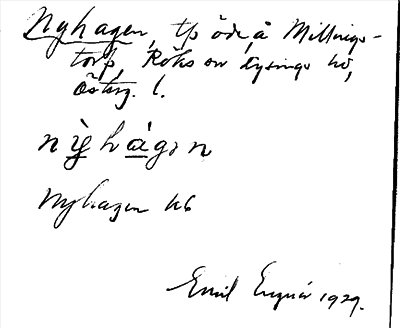 Nyhagen, tp öde, å Millings-
torp, Röks sn Lysings hd,
Österg. l.
nỳhàgɜn
Nyhagen hb
Emil 1929.